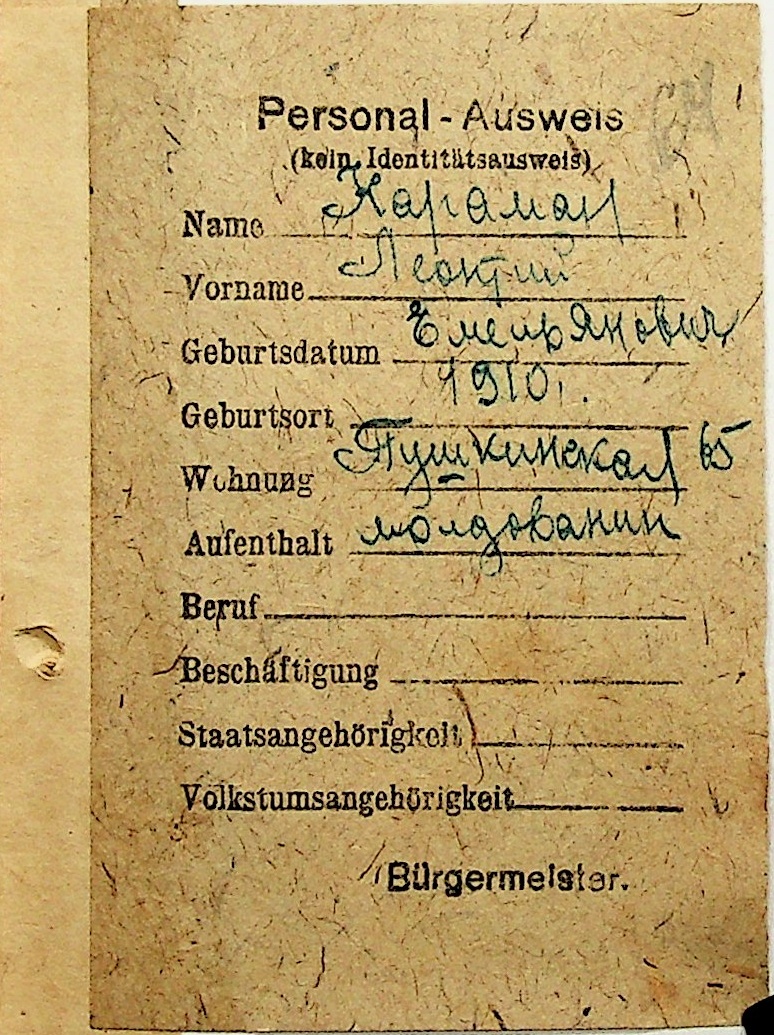 Personal - Ausweis
(kein Identitätsausweis)
Name Караман
Vorname Леонтий
Geburtsdatum Емельянович
Geburtsort 1910.
Wohnung Пушкинская 65
Aufenthalt молдованин
Beruf
Beschäftigung
Staatsangehörigkeit
Volkstumsangehörigkeit
Bürgermeister.